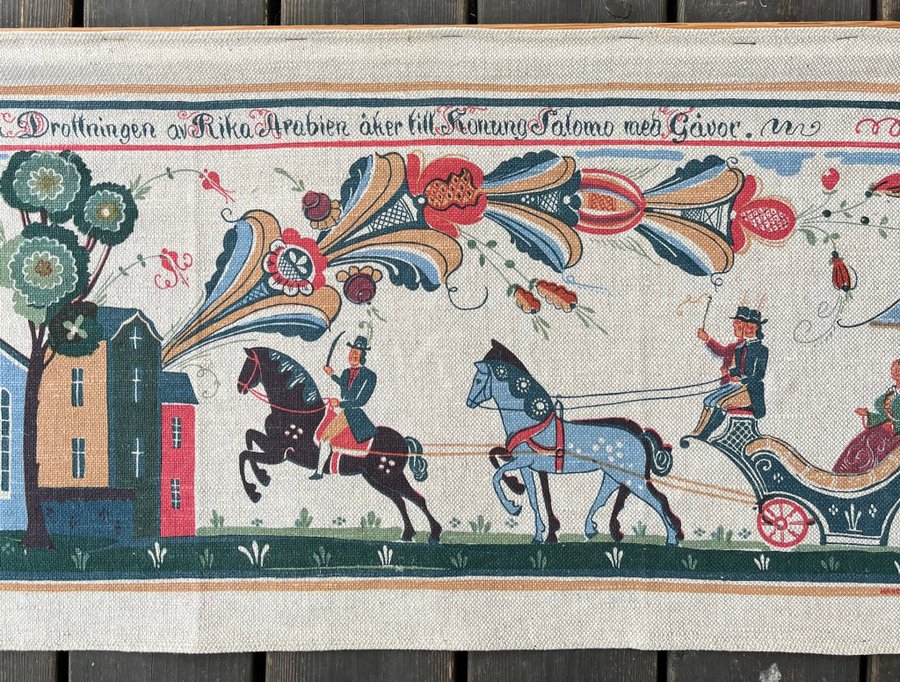 Drottningen av Rika Arabien åker till Konung Salomo med Gåvor.